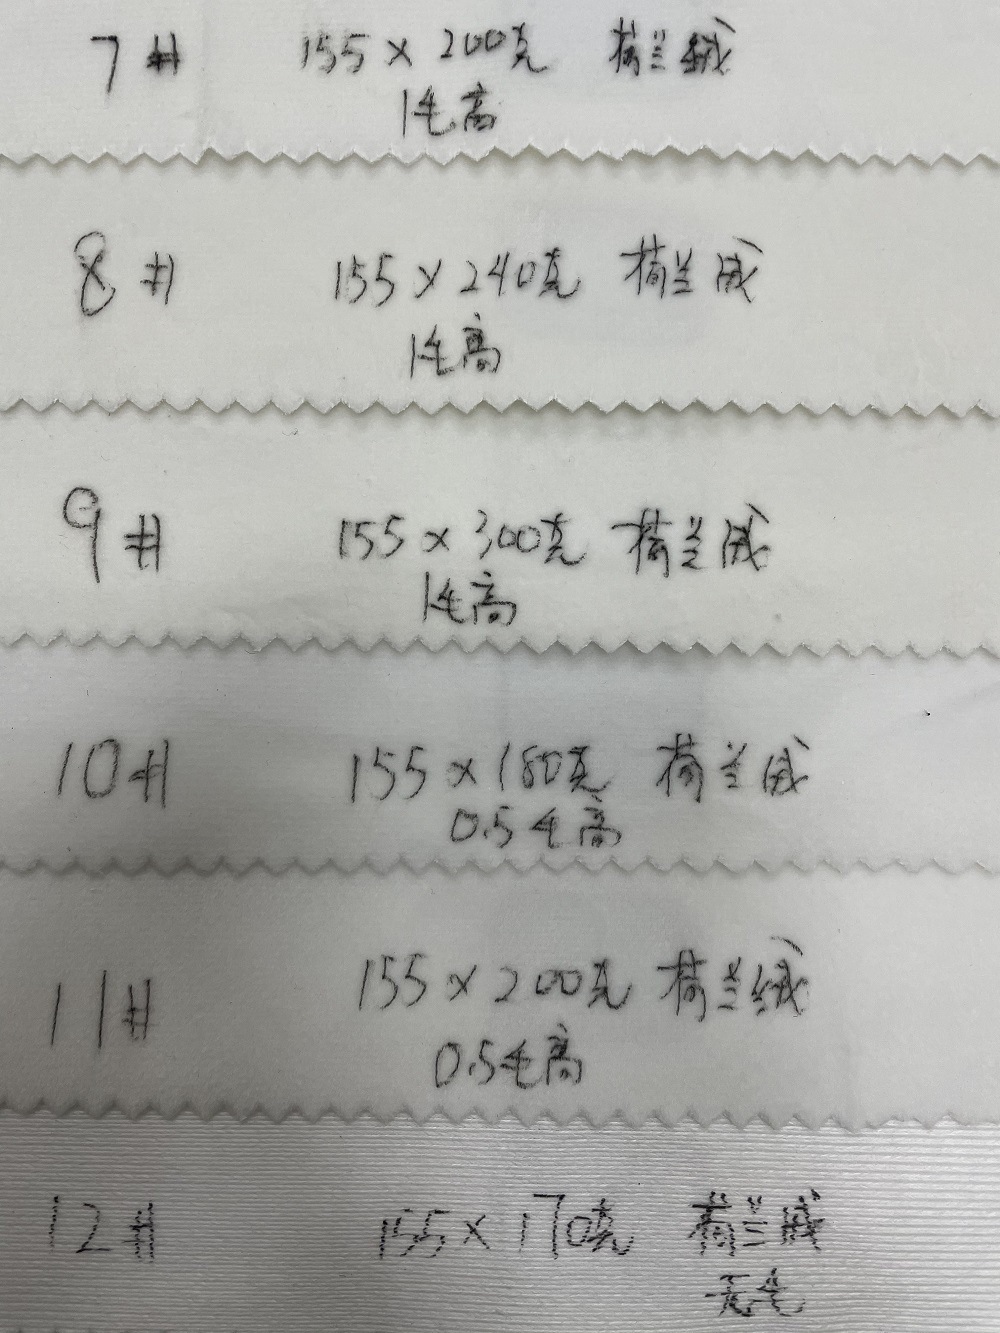 7# 155×200克 荷兰绒
1毛高
8# 155×240克 荷兰绒
1毛高
9# 155×300克 荷兰绒
1毛高
10# 155×180克 荷兰绒
0.5毛高
11# 155×200克 荷兰绒
0.5毛高
12# 155×170克 荷兰绒
无毛